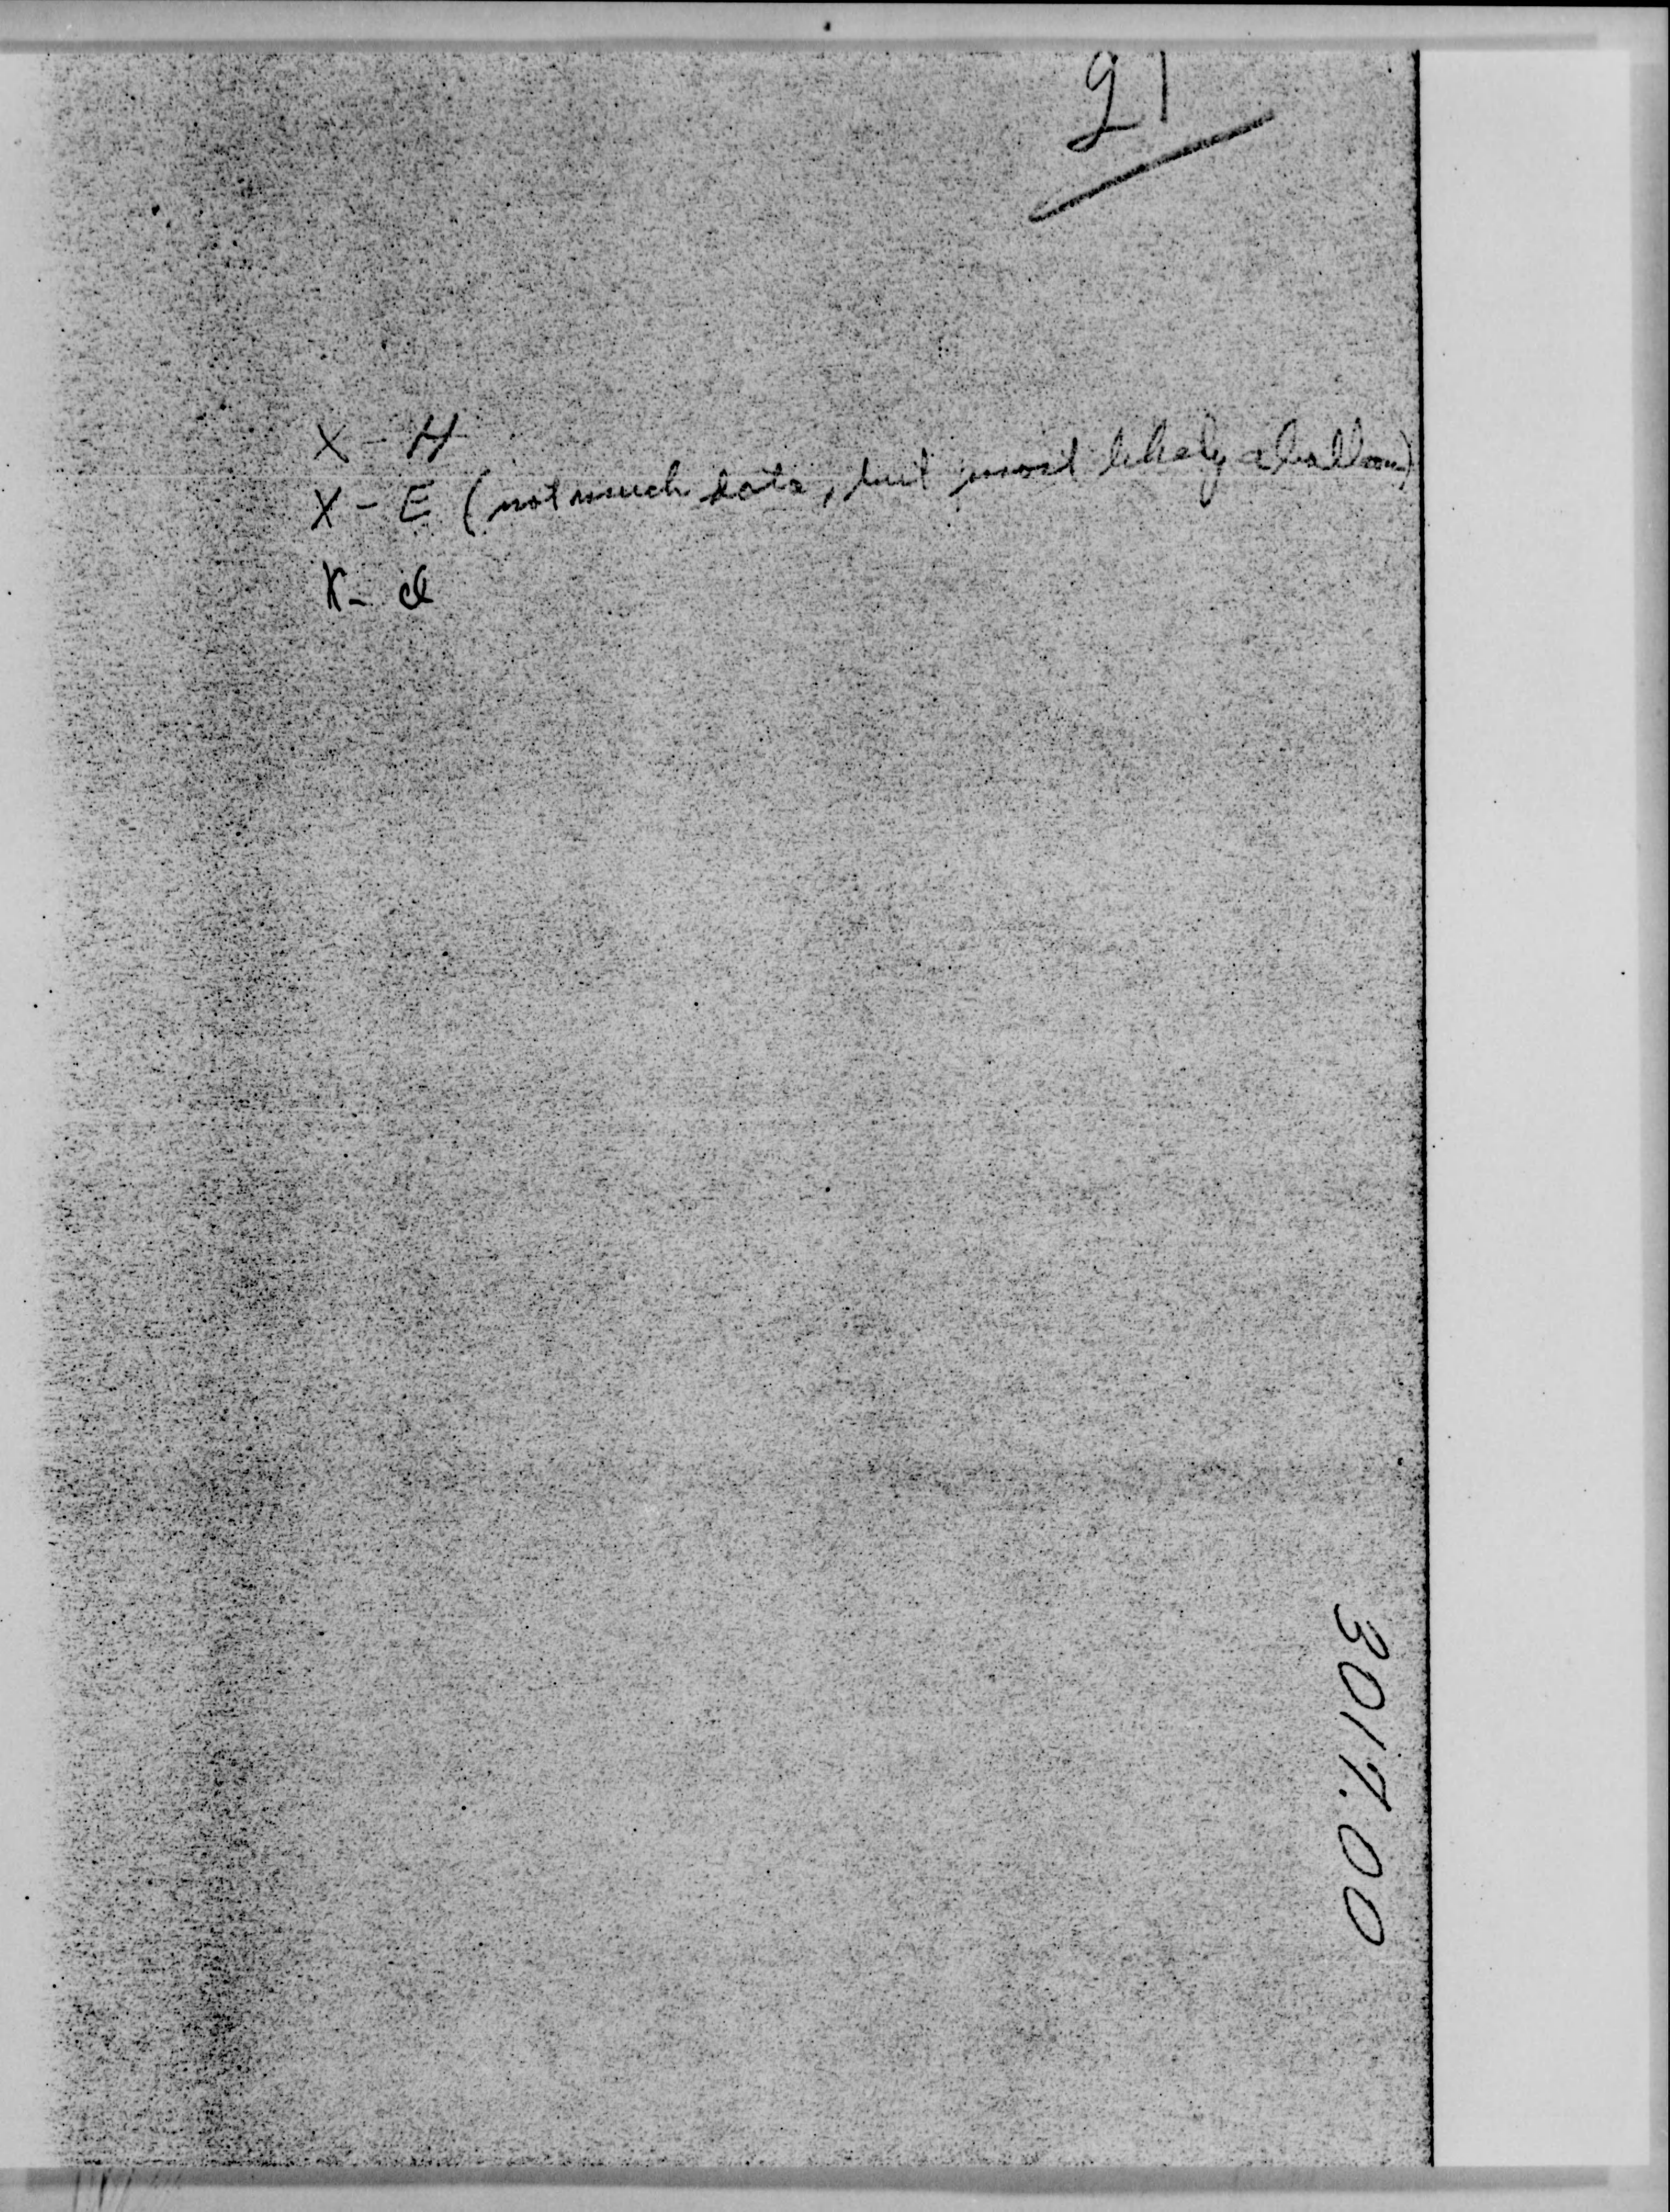 21
X - H
X - E (not much data, but most likely a balloon)
X - d
3017.00